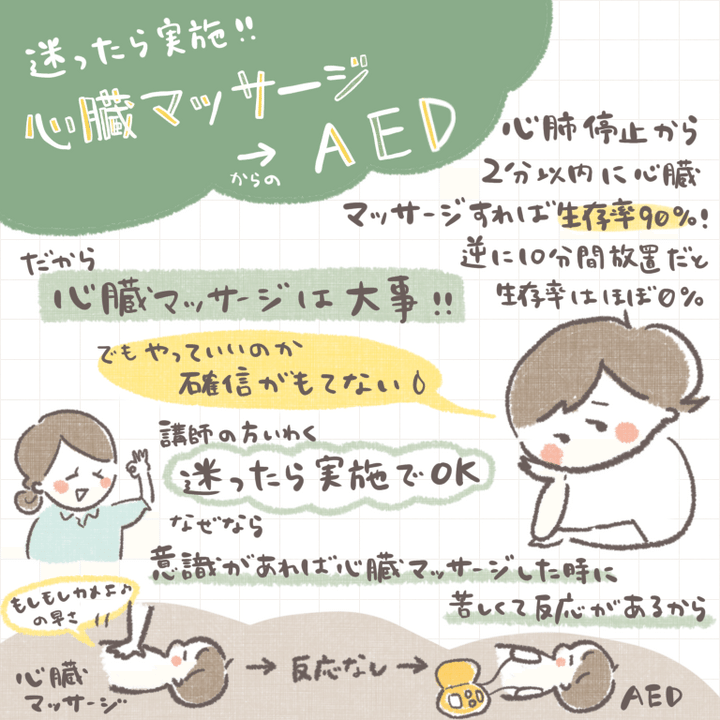 迷ったら実施!!
心臓マッサージ
→ AED
からの
心肺停止から
2分以内に心臓
マッサージすれば生存率90%!
逆に10分間放置だと
生存率はほぼ0%
だから
心臓マッサージは大事!!
でもやっていいのか
確信がもてない
講師の方いわく
迷ったら実施でOK
なぜなら
意識があれば心臓マッサージした時に
苦しくて反応があるから
もしもしカメよ♪
の早さ
心臓
マッサージ
→ 反応なし →
AED